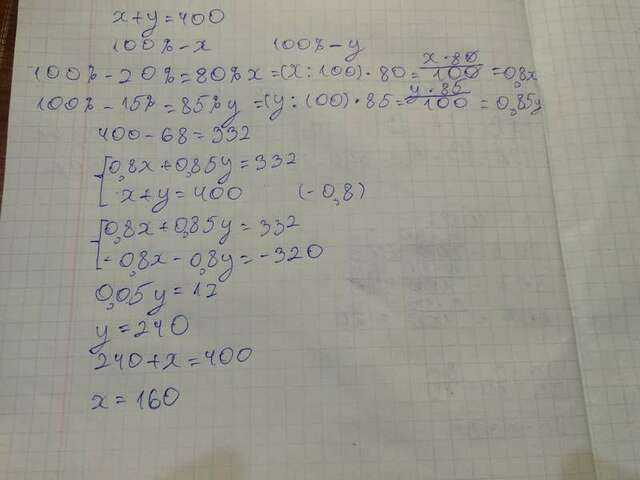 x+y=400
100% - x 100% - y
100% - 20% = 80% x = (x : 100) · 80 = x · 80 / 100 = 0,8x
100% - 15% = 85% y = (y : 100) · 85 = y · 85 / 100 = 0,85y
400 - 68 = 332
0,8x + 0,85y = 332
x + y = 400 (-0,8)
0,8x + 0,85y = 332
- 0,8x - 0,8y = -320
0,05y = 12
y = 240
240 + x = 400
x = 160